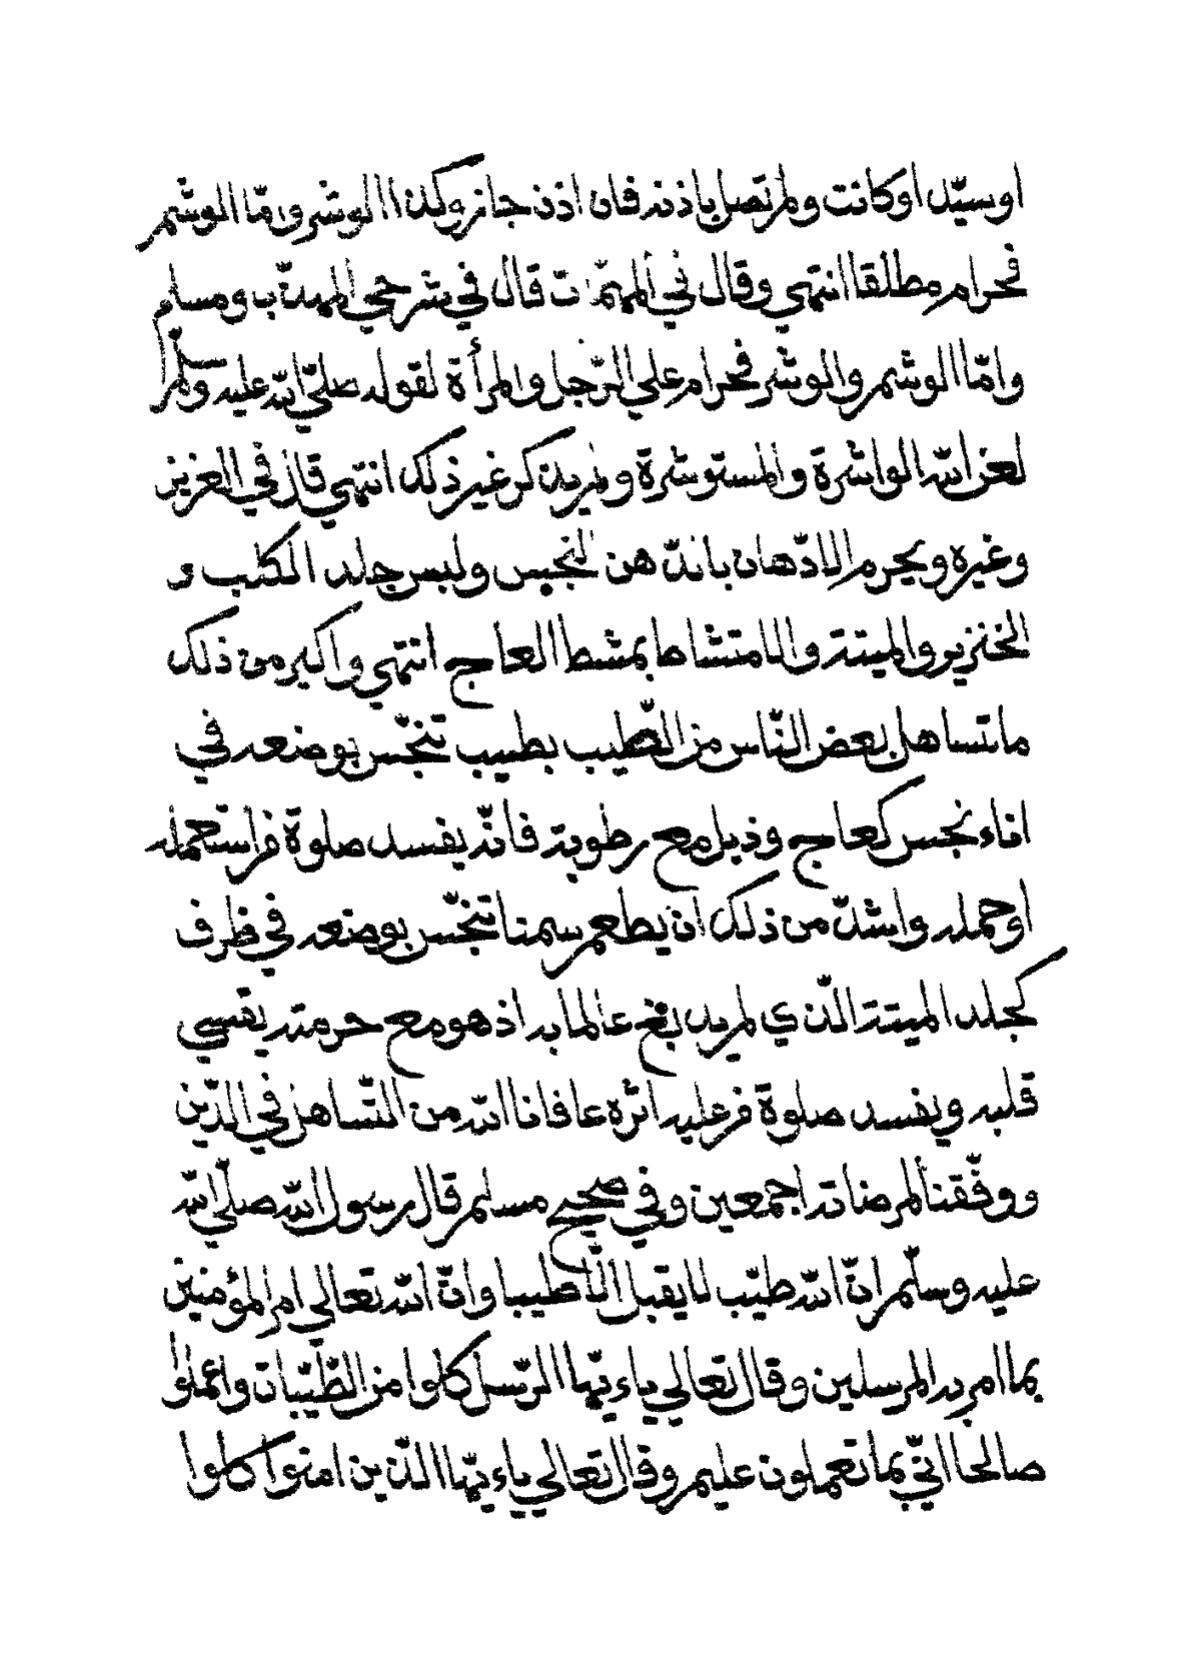 او سيّد او كانت ولم تصل باذنه فان اذن جاز وكذا الوشر وامّا الوشم
فحرام مطلقا انتهي وقال في المهمّات قال في شرحي المهذّب ومسلم
وامّا الوشم والوشر فحرام علي الرّجل والمرأة لقوله صلّي الله عليه وسلّم
لعن الله الواشرة والمستوشرة ولم يذكر غير ذلك انتهي قال في العزيز
وغيره ويحرم الادّهان بانّه هن النّجس ولبس جلد الكلب و
الخنزير والميتة والامتشاط بمشط العاج انتهي واكبر من ذلك
ما تساهل بعض النّاس من الطّيب بطيب تنجّس بوضعه في
اناء نجس كعاج وذبل مع رطوبة فانّه يفسد صلوة فراستعمله
او حمله واشدّ من ذلك ان يطعم سمنا تنجّس بوضعه في ظرف
كجلد الميتة الّذي لم يدبغ عالما به اذ هو مع حرمته يقسي
قلبه ويفسد صلوة فرعليه اثره عافانا الله من التّساهل في الدّين
ووفّقنا لمرضاته اجمعين وفي صحيح مسلم قال رسول الله صلّي الله
عليه وسلّم انّ الله طيّب لا يقبل الّا طيبا وانّ الله تعالي امر المؤمنين
بما امر به المرسلين وقال تعالي ياءيّها الرّسل كلوا من الطّيّبات واعملوا
صالحا انّي بما تعملون عليم وقال تعالي ياءيّها الّذين امنوا كلوا